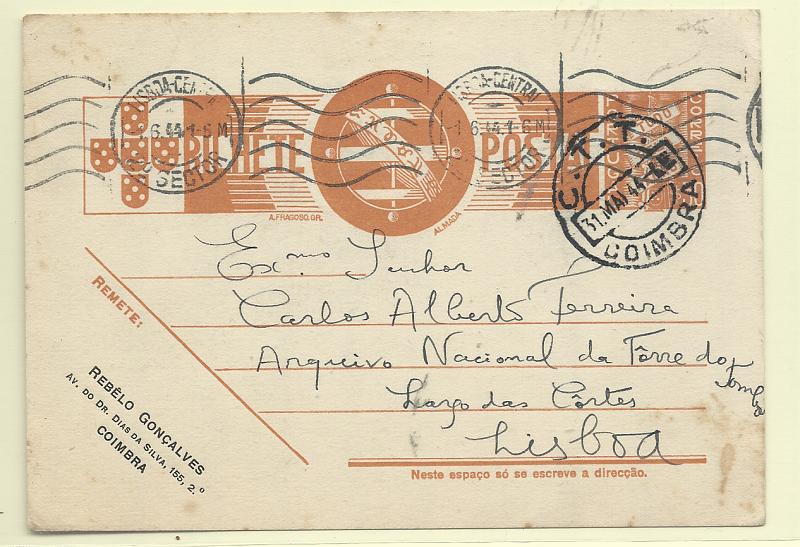 LISBOA-CENTRAL
1 6.44.1-6 M
2º SECTOR
LISBOA-CENTRAL
-1 6.44.1-6 M
2º SECTOR
BILHETE POSTAL
C.T.T.
31.MAI.44
COIMBRA
A.FRAGOSO.GR. ALMADA
REMETE:
REBÊLO GONÇALVES
AV. DO DR. DIAS DA SILVA, 155, 2.º
COIMBRA
Ex.mo Senhor
Carlos Alberto Ferreira
Arquivo Nacional da Tôrre do
Tombo
Largo das Côrtes
Lisboa
Neste espaço só se escreve a direcção.